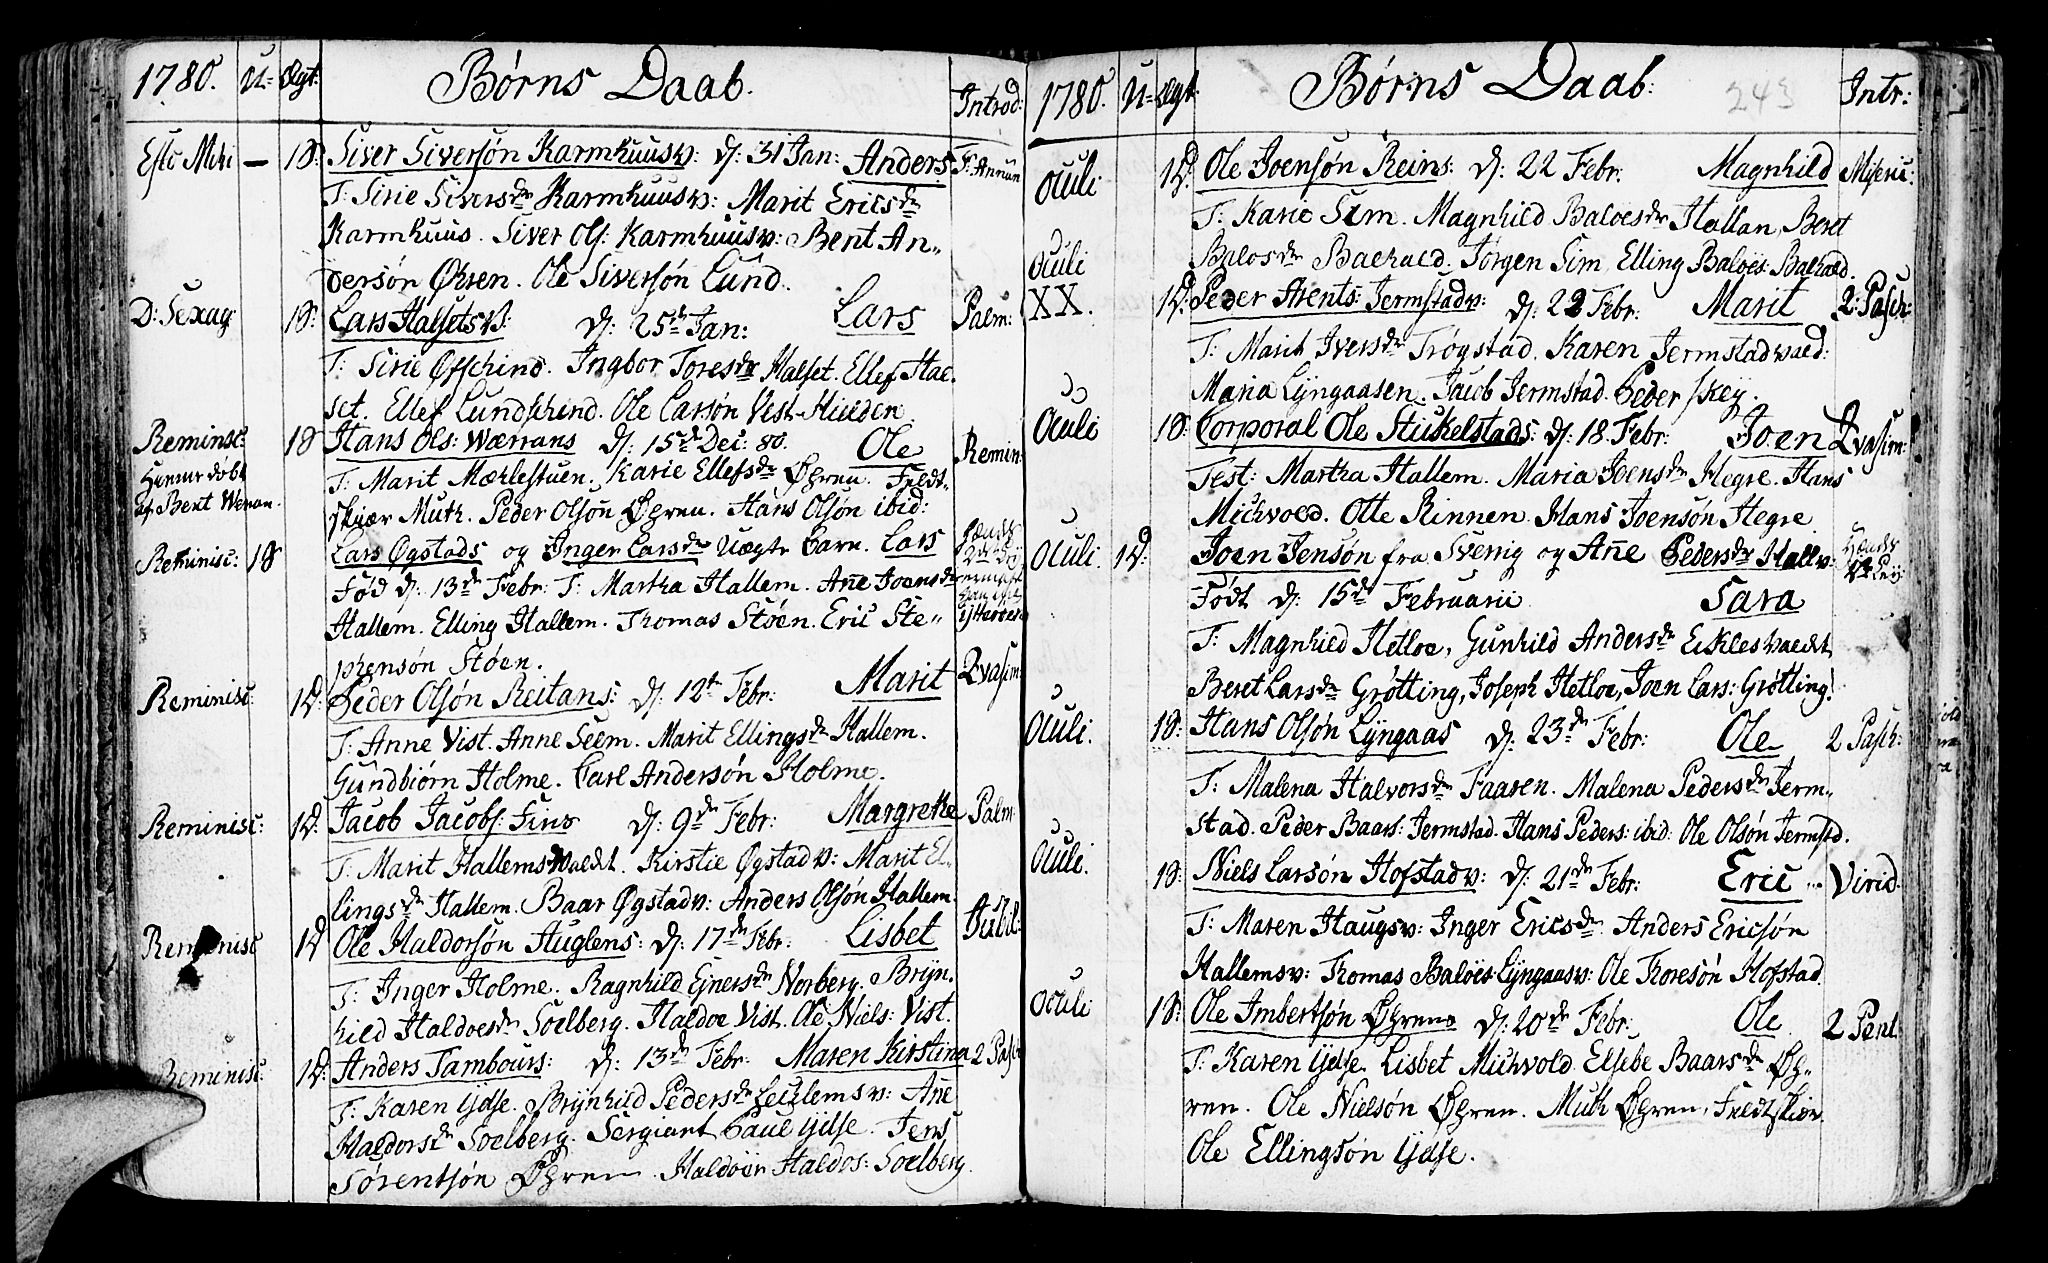 1780. U= Ægt: Børns Daab. Introd:
Esto Mihi — 1S: Siver Siversøn Karmhuusv: d: 31 Jan: Anders F: Annun
T: Sirie Siversdr Karmhuusv: Marit Ericsdr
Karmhuus. Siver Ols: Karmhuusv: Bent An„
dersøn Øhren. Ole Siversøn Lund.
D: Sexag: 1S: Lars Halsetsv: d: 25de Jan: Lars Palm:
T: Sirie Øfschind. Ingbor Toresdr Halset. Ellef Hal
set. Ellef Lundschind. Ole Larsøn Vist
Reminsc: 1S Hans Ols: Wærrans d: 15de Dec: 80. Ole Remin:
Hiemmedøbt
af Bent Werran.
T: Marit Mæhlestuen. Karie Ellefsdr Øgren. Feldt„
skjær Muth. Peder Olsøn Øgren. Hans Olsøn ibid:
Reminisc: 1S Lars Øgstads og Inger Larsdr Uægte Barn. Lars
Fød d: 13de Febr. T: Martha Hallem. Añe Joensdr
Hallem. Elling Hallem. Thomas Støen. Eric Ste„
phensøn Støen.
Reminisc: 1D: Peder Olsøn Reitans: d: 12te Febr: Marit Qvasim:
T: Anne Vist. Anne Seem. Marit Ellingsdr Hallem.
Gundbiørn Holme. Carl Andersøn Holme.
Reminisc: 1D: Jacob Jacobs: Fins d: 9de Febr: Margrethe Palm:
T: Marit Hallemsvaldt. Kirstie Øgstadv: Marit El„
lingsdr Hallem. Baar Øgstadv: Anders Olsøn Hallem.
Reminisc 1D Ole Haldorsøn Huglens: d: 17de Febr: Lisbet Jubil:
T: Inger Holme. Ragnhild Ejnersdr Norberg. Bryn„
hild Haldoesdr Soelberg. Haldoe Vist. Ole Niels: Vist.
Reminisc: 1D: Anders Tambours: d: 13de Febr: Maren Kirstina 2 Pasc
T: Karen Ydse. Brynhild Pedersdr Lechlemsv: Añe
Haldorsdr Soelberg. Sergiant Paul Ydse. Jens
Sørentsøn Øgren. Haldoer Haldos: Soelberg.
1780. U= Ægt: Børns Daab: 243 Intr:
Oculi 1D: Ole Joensøn Reins: d: 22 Febr. Magnhild Miseric:
T: Karie Sem. Magnhild Baloesdr Hallan, Beret
Balosdr Balhald. Jørgen Sim, Elling Baloes: Balhald.
Oculi
XX. 1D: Peder Arents: Jermstadv: d: 22 Febr: Marit 2: Pasch:
T: Marit Iversdr Trøgstad. Karen Jermstadvald:
Maria Lÿngaasen. Jacob Jermstad. Peder skeÿ.
Oculi 1S: Corporal Ole Stikelstads: d: 18. Febr: Joen Qvasim:
Test: Martha Hallem. Maria Joensdr Hegre. Hans
Michvold. Otte Rinnen. Hans Joensøn Hegre
Oculi. 1D: Joen Jensøn fra Sverrig og Añe Pedersdr Hallv:
Født d: 15de Februarii Sara
T: Magnhild Hetloe, Gunhild Andersdr Ecklesvaldt
Beret Larsdr Grøtting, Joseph Hetloe, Joen Lars: Grøtting.
Oculi. 1S: Hans Olsøn Lÿngaas d: 23de Febr: Ole 2 Pasch:
T: Malena Halvorsdr Faaren. Malena Pedersdr Jerm„
stad. Peder Baars: Jermstad. Hans Peders: ibid: Ole Olsøn Jermstd.
Oculi. 1S: Niels Larsøn Hofstadv: d: 21de Febr: Eric Virid.
T: Maren Haugsv: Inger Ericsdr Anders Ericsøn
Hallemsv: Thomas Baloes: Lÿngaasv: Ole Thoresøn Hofstad
Oculi 1S: Ole Imbertsøn Øgrens d: 20de Febr: Ole 2 Pent
T: Karen Ydse. Lisbet Michvold. Elsebe Baarsdr Øg„
ren. Ole Nielsøn Øgren. Muth Øgren, Feldtskiær.
Ole Ellingsøn Ydse.